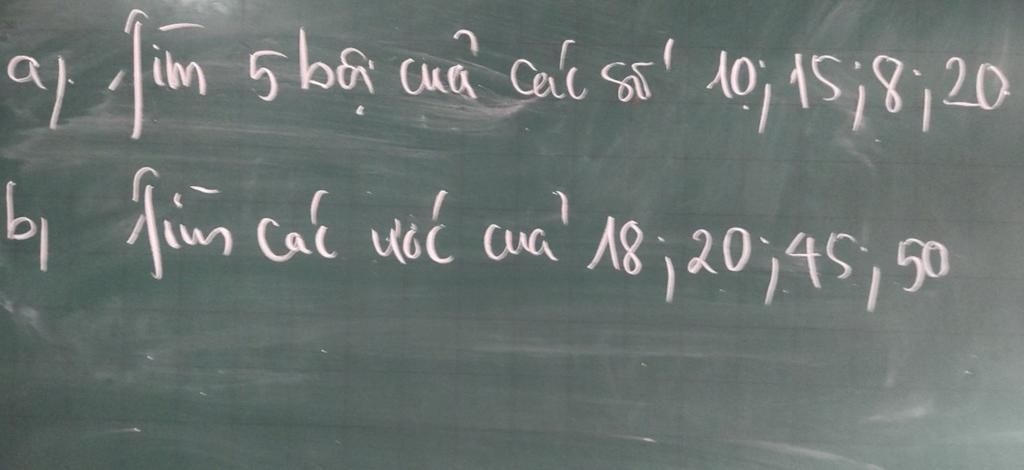 a). Tìm 5 bội của các số 10; 15; 8; 20
b) Tìm các ước của 18; 20; 45; 50